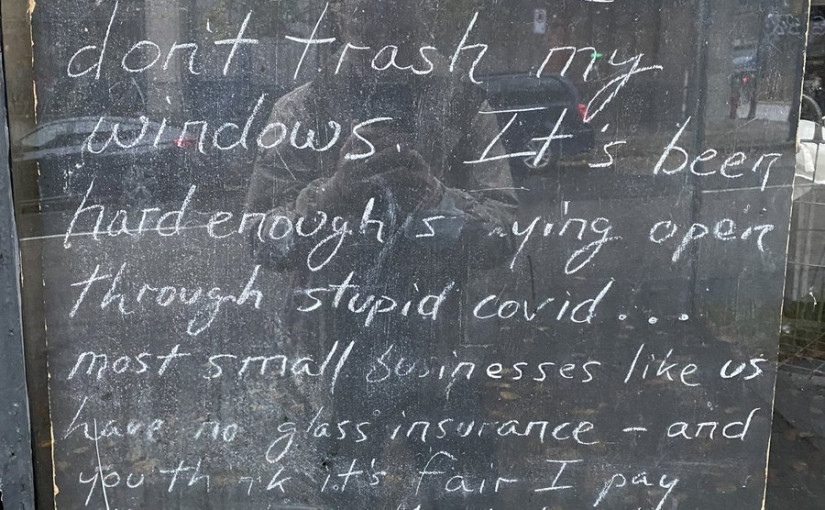 don't trash my
windows. It's been
hard enough s ying open
through stupid covid...
most small businesses like us
have no glass insurance - and
you think it's fair I pay